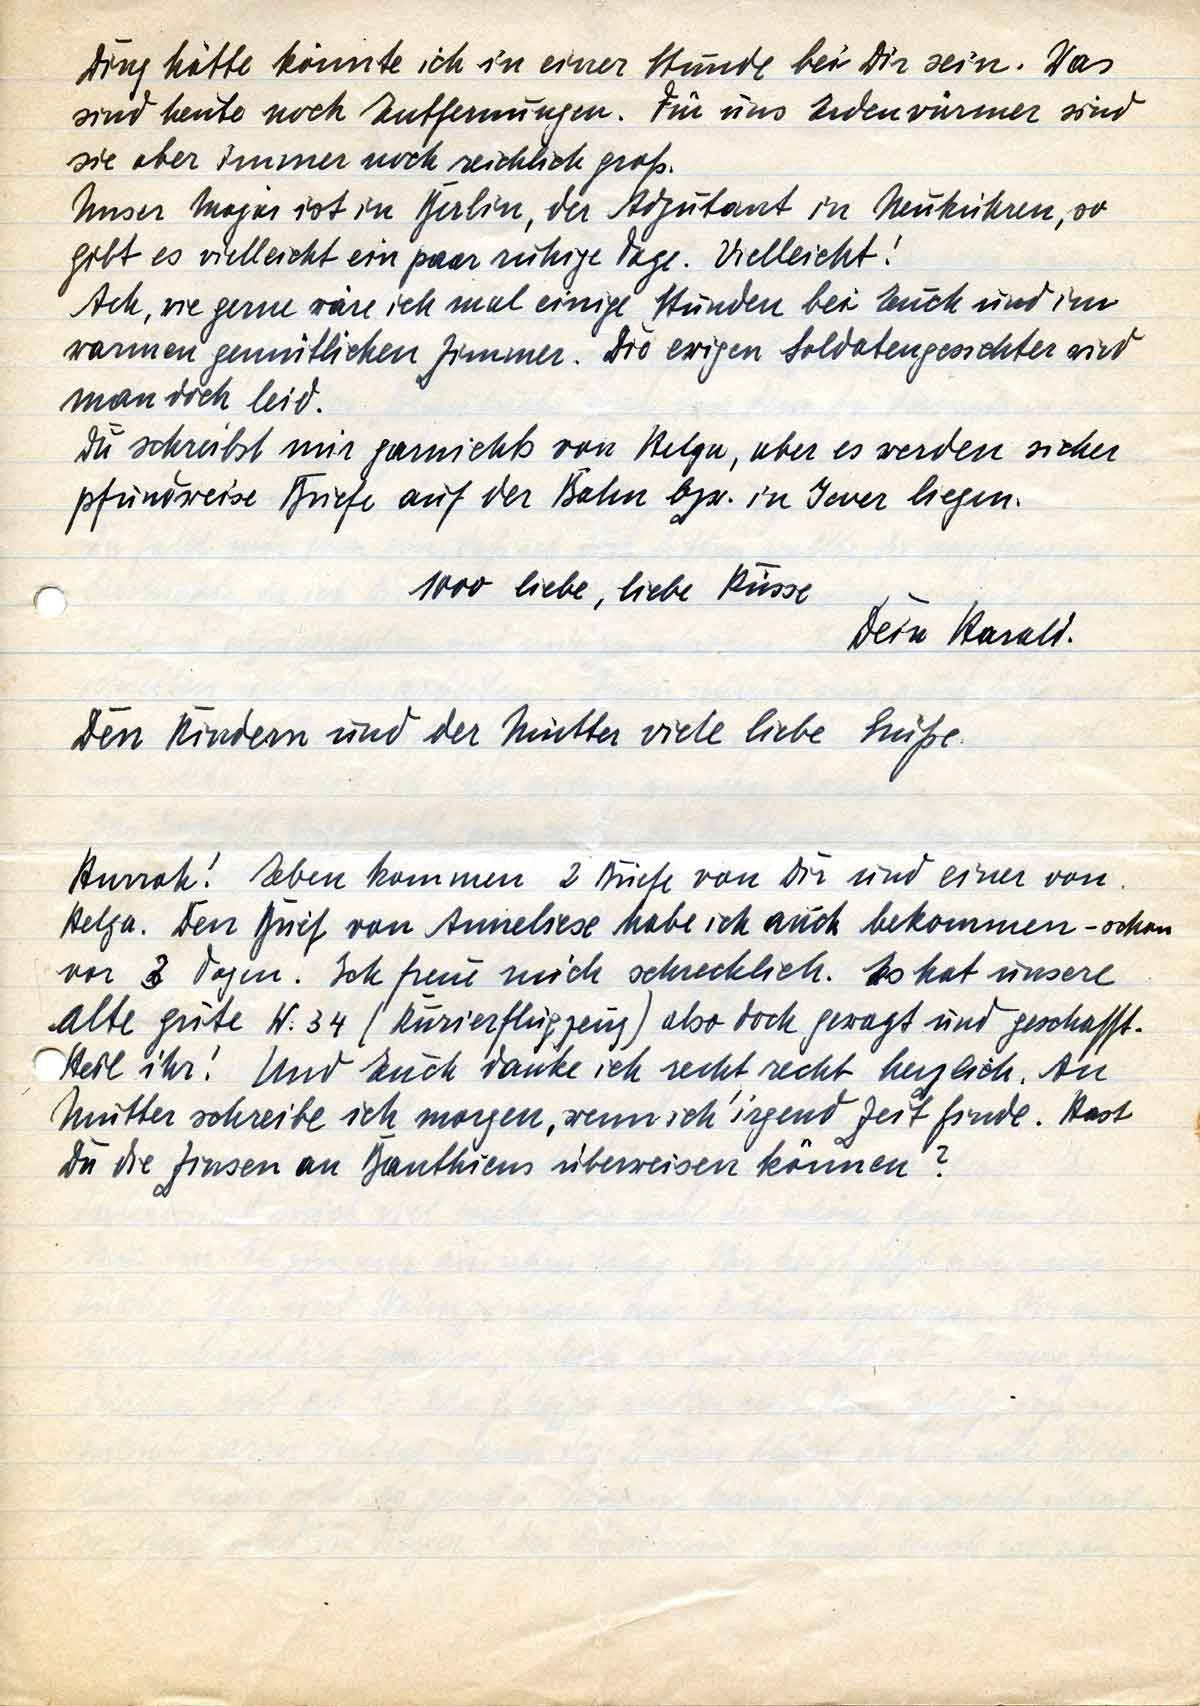 Ding hätte könnte ich in einer Stunde bei Dir sein. Das
sind heute noch Entfernungen. Für uns Erdenwürmer sind
sie aber immer noch reichlich groß.
Unser Major ist in Berlin, der Adjutant in Neukuhren, so
gibt es vielleicht ein paar ruhige Tage. Vielleicht!
Ach, wie gerne wäre ich mal einige Stunden bei Euch und im
warmen gemütlichen Zimmer. Die ewigen Soldatengesichter wird
man doch leid.
Du schreibst mir garnichts von Helga, aber es werden sicher
pfundweise Briefe auf der Bahn bzw. in Jever liegen.
1000 liebe, liebe Küsse
Dein Harald.
Den Kindern und der Mutter viele liebe Grüße.
Hurrah! Eben kommen 2 Briefe von Dir und einer von
Helga. Den Brief von Anneliese habe ich auch bekommen - schon
vor 2 Tagen. Ich freue mich schrecklich. Es hat unsere
alte gute W. 34 (Kurierflugzeug) also doch gewagt und geschafft.
Heil ihr! Und Euch danke ich recht recht herzlich. An
Mutter schreibe ich morgen, wenn ich irgend Zeit finde. Hast
Du die Zinsen an Banthiens überweisen können?